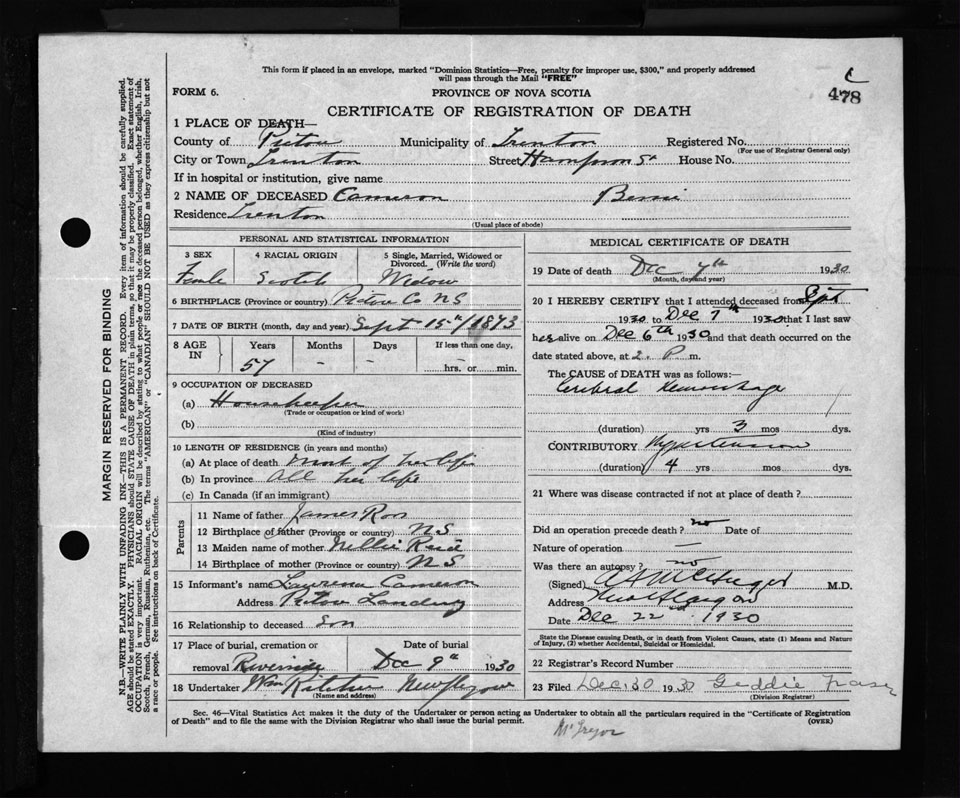 This form if placed in an envelope, marked "Dominion Statistics—Free, penalty for improper use, $300," and properly addressed
will pass through the Mail "FREE"
478
FORM 6. PROVINCE OF NOVA SCOTIA
CERTIFICATE OF REGISTRATION OF DEATH
1 PLACE OF DEATH—
County of Pictou Municipality of Trenton Registered No.
(For use of Registrar General only)
City or Town Trenton Street Hampson St House No.
If in hospital or institution, give name
2 NAME OF DECEASED Cameron
Residence Trenton
(Usual place of abode)
PERSONAL AND STATISTICAL INFORMATION
3 SEX 4 RACIAL ORIGIN 5 Single, Married, Widowed or Divorced. (Write the word)
Female Scotch Widow
6 BIRTHPLACE (Province or country) Pictou Co NS
7 DATE OF BIRTH (month, day and year) Sept 15th/1873
8 AGE IN Years Months Days If less than one day,
57 - - hrs. or min.
9 OCCUPATION OF DECEASED
(a) Housekeeper
(Trade or occupation or kind of work)
(b)
(Kind of industry)
10 LENGTH OF RESIDENCE (in years and months)
(a) At place of death most of her life
(b) In province All her life
(c) In Canada (if an immigrant)
Parents
11 Name of father James Ross
12 Birthplace of father (Province or country) NS
13 Maiden name of mother Nellie Reid
14 Birthplace of mother (Province or country) NS
15 Informant's name Cameron
Address Pictou Landing
16 Relationship to deceased Son
17 Place of burial, cremation or removal Riverside Date of burial Dec 9th 1930
18 Undertaker Wm Ritchie New Glasgow
(Name and address)
MEDICAL CERTIFICATE OF DEATH
19 Date of death Dec 7th 1930
(Month, day and year)
20 I HEREBY CERTIFY that I attended deceased from Sept
1930 to Dec 7th 1930 that I last saw
her alive on Dec 6th 1930 and that death occurred on the
date stated above, at 2. P m.
The CAUSE of DEATH was as follows:—
Cerebral Hemorrhage
(duration) yrs 3 mos dys.
CONTRIBUTORY Hypertension
(duration) 4 yrs mos. dys.
21 Where was disease contracted if not at place of death?
Did an operation precede death? no Date of
Nature of operation —
Was there an autopsy? no
(Signed) M.D.
Address New Glasgow
Date Dec 22 1930
State the Disease causing Death, or in death from Violent Causes, state (1) Means and Nature
of Injury, (2) whether Accidental, Suicidal or Homicidal.
22 Registrar's Record Number
23 Filed Dec. 30 1930 Geddie Fraser
(Division Registrar)
Sec. 46—Vital Statistics Act makes it the duty of the Undertaker or person acting as Undertaker to obtain all the particulars required in the "Certificate of Registration
of Death" and to file the same with the Division Registrar who shall issue the burial permit. (OVER)
McGregor
MARGIN RESERVED FOR BINDING
N.B.—WRITE PLAINLY WITH UNFADING INK—THIS IS A PERMANENT RECORD. Every item of information should be carefully supplied.
AGE should be stated EXACTLY. PHYSICIANS should STATE CAUSE OF DEATH in plain terms, so that it may be properly classified. Exact statement of
OCCUPATION is very important. RACIAL ORIGIN will be described by stating to what people or race the deceased person belonged, whether English, Irish,
Scotch, French, German, Russian, Ruthenian, etc. The terms "AMERICAN" or "CANADIAN" SHOULD NOT BE USED as they express citizenship but not
a race or people. See instructions on back of Certificate.